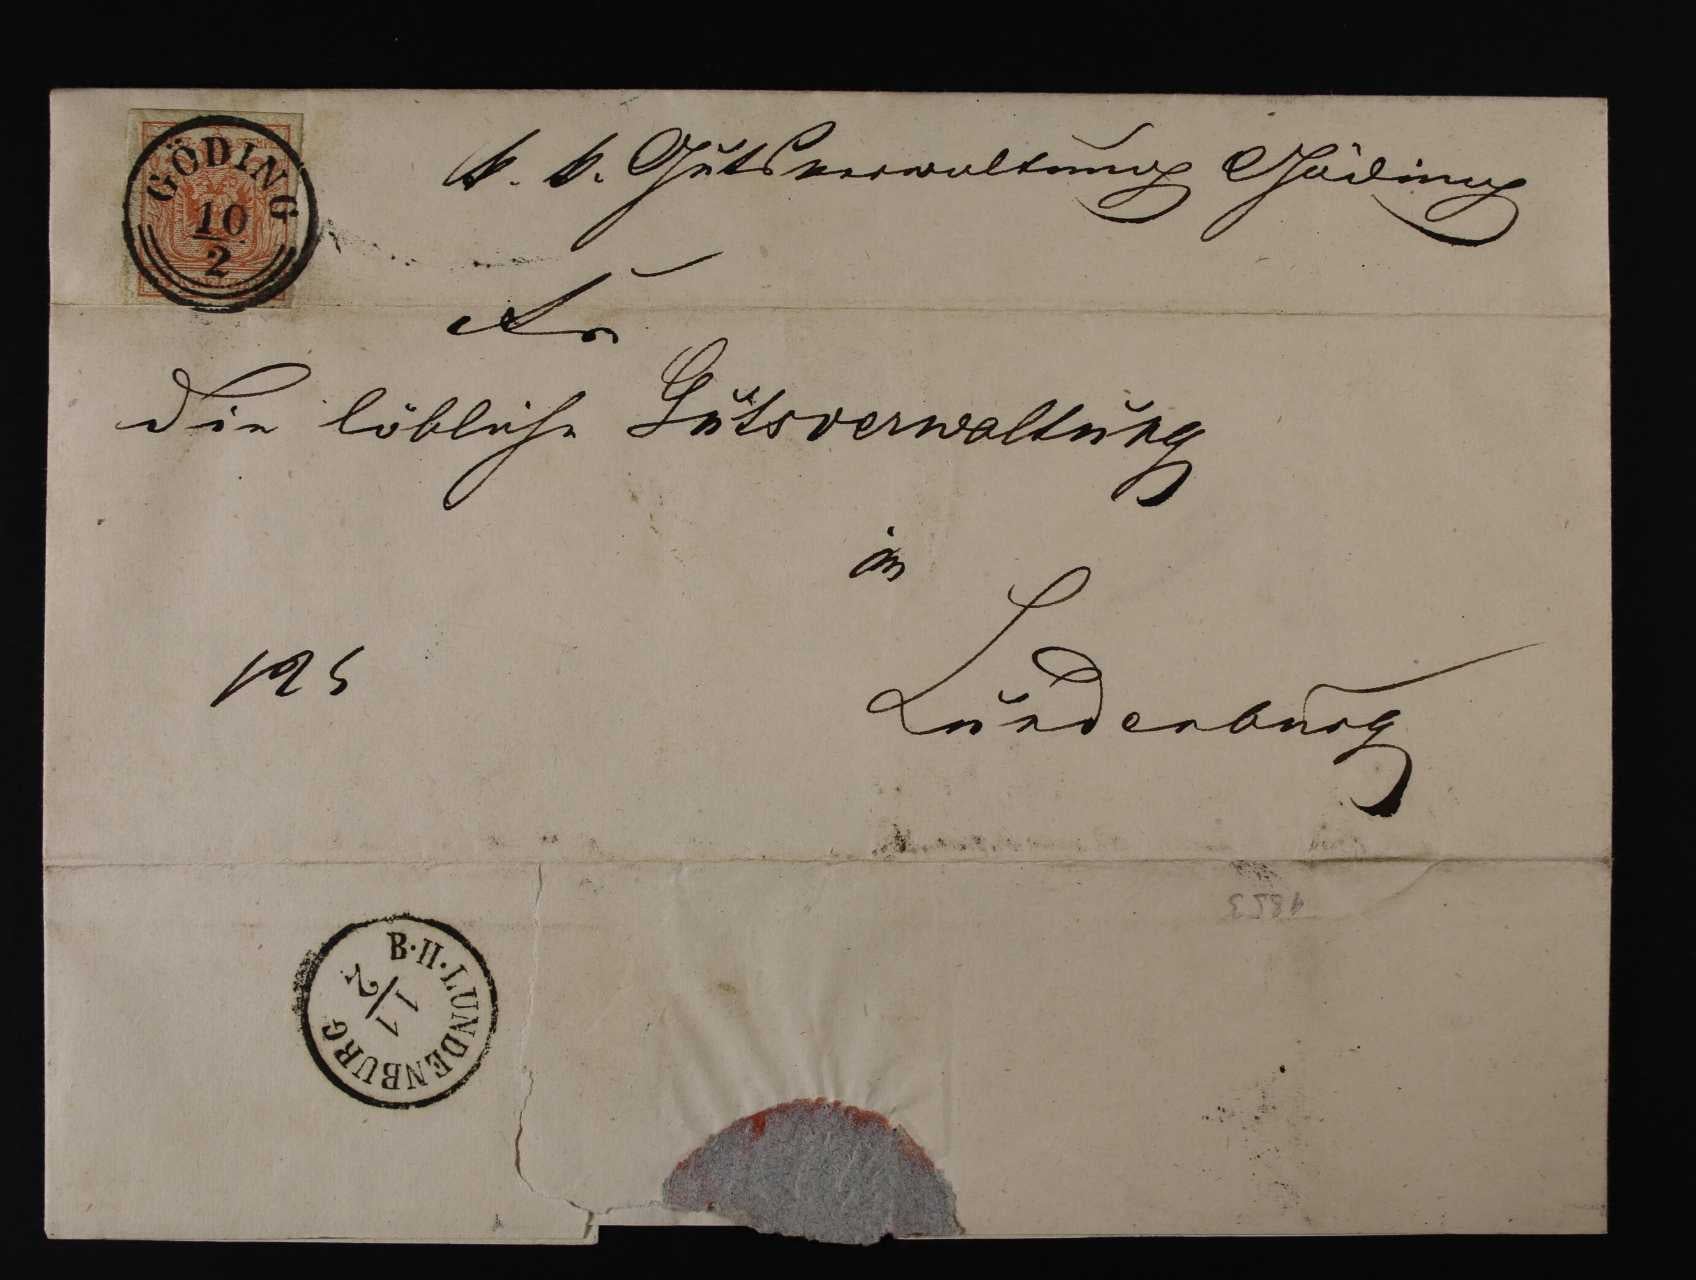 GÖDING
10
2
k. k. Gutsverwaltung Göding
An
die löbliche Gutsverwaltung
in
Lundenburg
195
B.H.LUNDENBURG
11
2
1853